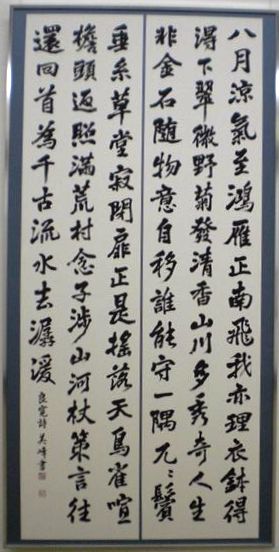 八月涼氣至鴻雁正南飛我亦理衣鉢得
得下翠微野菊發清香山川多秀奇人生
非金石随物意自移誰能守一隅兀〻鬢
垂糸草堂寂閉扉正是揺落天鳥雀喧
檐頭返照満荒村念子渉山河杖策言往
還回首為千古流水去潺湲
良寛詩 書